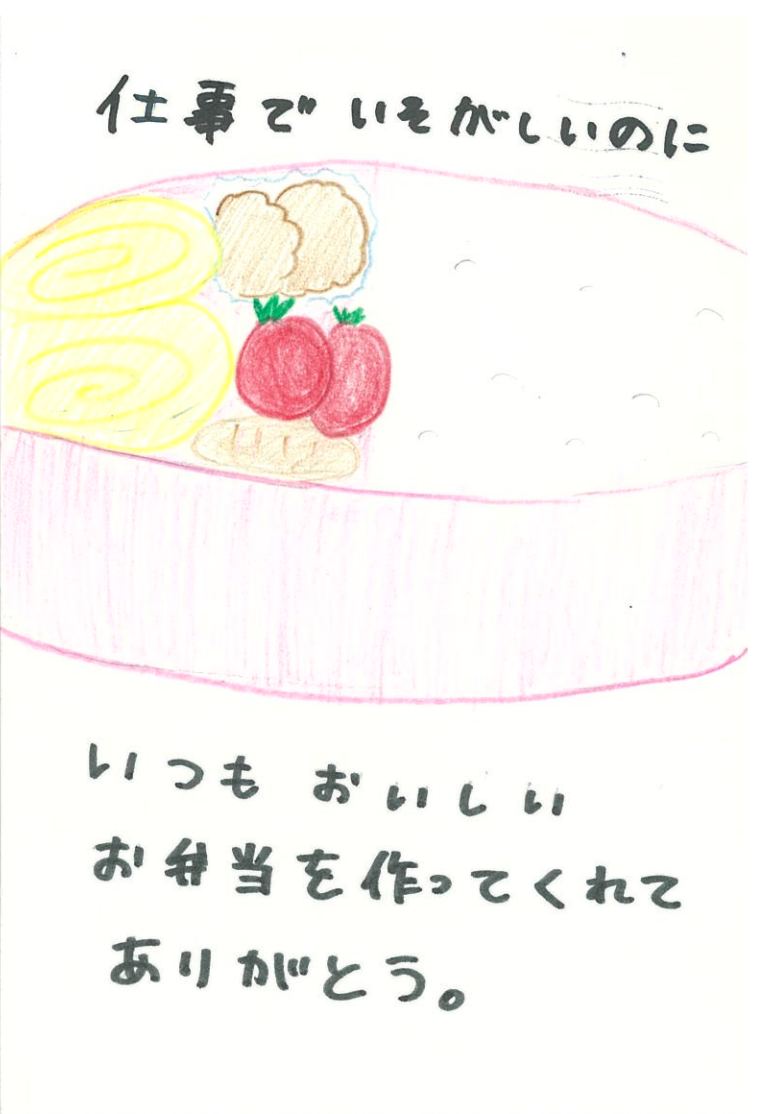 仕事でいそがしいのに
いつもおいしい
お弁当を作ってくれて
ありがとう。